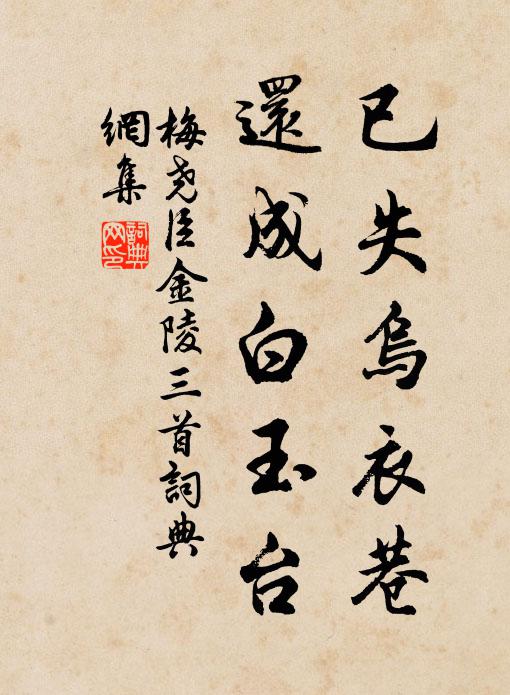 已失烏衣巷
還成白玉台
梅堯臣金陵三首詞典
網集
詞典網印